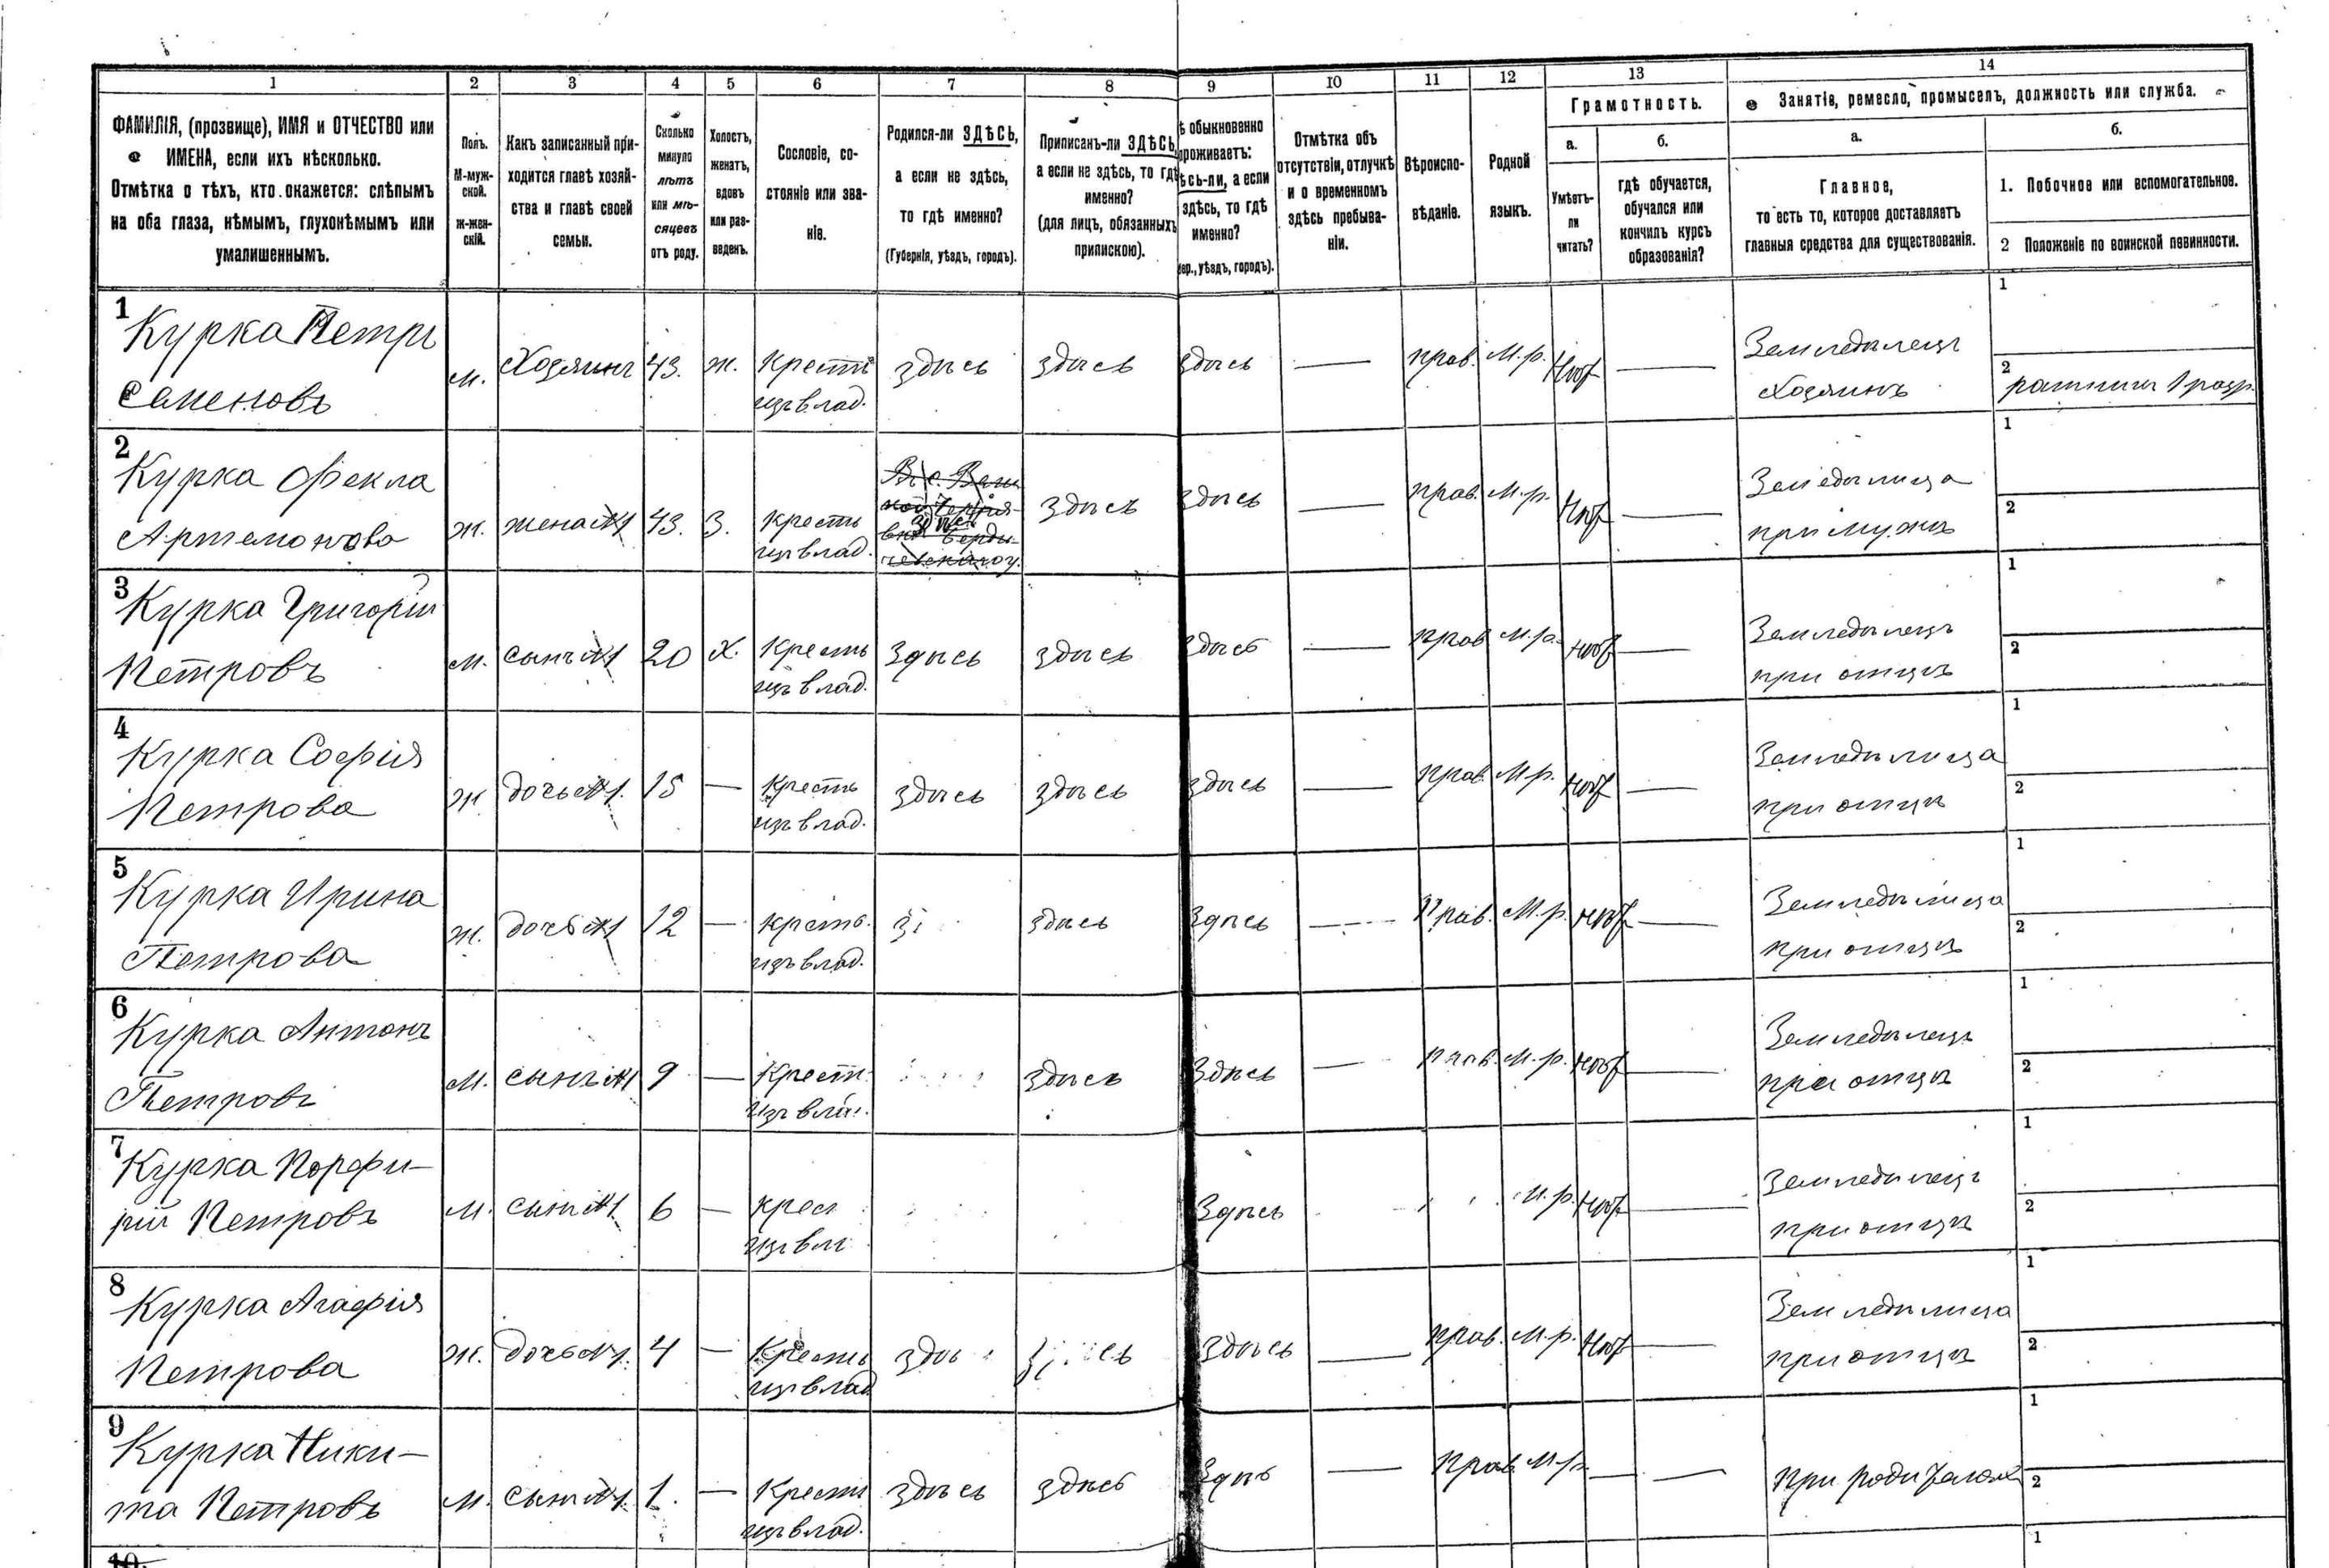 1 2 3 4 5 6 7 8 9 10 11 12 13 14
ФАМИЛІЯ, (прозвище), ИМЯ и ОТЧЕСТВО или
ИМЕНА, если ихъ нѣсколько.
Отмѣтка о тѣхъ, кто окажется: слѣпымъ
на оба глаза, нѣмымъ, глухонѣмымъ или
умалишеннымъ.
Полъ.
М-муж-
ской.
Ж-жен-
скій.
Какъ записанный при-
ходится главѣ хозяй-
ства и главѣ своей
семьи.
Сколько
минуло
лѣтъ
или мѣ-
сяцевъ
отъ роду.
Холостъ,
женатъ,
вдовъ
или раз-
веденъ.
Сословіе, со-
стояніе или зва-
ніе.
Родился-ли ЗДѢСЬ,
а если не здѣсь,
то гдѣ именно?
(Губернія, уѣздъ, городъ).
Приписанъ-ли ЗДѢСЬ,
а если не здѣсь, то гдѣ
именно?
(для лицъ, обязанныхъ
припискою).
ѣ обыкновенно
проживаетъ:
ѣсь-ли, а если
здѣсь, то гдѣ
именно?
бер., уѣздъ, городъ).
Отмѣтка объ
отсутствіи, отлучкѣ
и о временномъ
здѣсь пребыва-
ніи.
Вѣроиспо-
вѣданіе.
Родной
языкъ.
Грамотность.
а.
Умѣетъ-
ли
читать?
б.
гдѣ обучается,
обучался или
кончилъ курсъ
образованія?
Занятіе, ремесло, промыселъ, должность или служба.
а.
Главное,
то есть то, которое доставляетъ
главныя средства для существованія.
б.
1. Побочное или вспомогательное.
2 Положеніе по воинской повинности.
1
Курка Петръ м. Хозяинъ 43. ж. Крестъ здѣсь здѣсь здѣсь — прав. М.р. Нѣт — Земледѣлецъ 1
Семеновъ изъ влад. Хозяинъ 2 ратникъ 1 разр.
2
Курка Фекла ж. жена №1 43. З. Кресть здѣсь здѣсь здѣсь — прав. М.р. Нѣт — Земледѣлица 1
Артемонова изъ влад. при мужѣ 2
3
Курка Григорій м. сынъ №1 20 Х. Кресть здѣсь здѣсь здѣсь — прав М.р. Нѣт — Земледѣлецъ 1
Петровъ изъ влад. при отцѣ 2
4
Курка Софія ж дочь №1. 15 — Кресть здѣсь здѣсь здѣсь — прав. М.р. Нѣт — Земледѣлица 1
Петрова изъ влад. при отцѣ 2
5
Курка Ирина ж. дочь №1 12 — кресть. здѣсь здѣсь — Прав. М.р. нѣт — Земледѣлица 1
Петрова изъ влад. при отцѣ 2
6
Курка Антонъ м. сынъ №1 9 — Крест. здѣсь здѣсь — прав. М.р. нѣт — Земледѣлецъ 1
Петровъ изъ влад. при отцѣ 2
7
Курка Порфи- м. сынъ №1 6 — крес здѣсь М.р. нѣт — Земледѣлецъ 1
рій Петровъ изъ вл при отцѣ 2
8
Курка Агафія ж. дочь №1. 4 — Кресть здѣсь — прав. М.р. Нѣт — Земледѣлица 1
Петрова изъ влад при отцѣ 2
9
Курка Ники- м. сынъ №1. 1. — Кресть здѣсь здѣсь — прав М.р. — — При 1
та Петровъ изъ влад. 2
10. 1